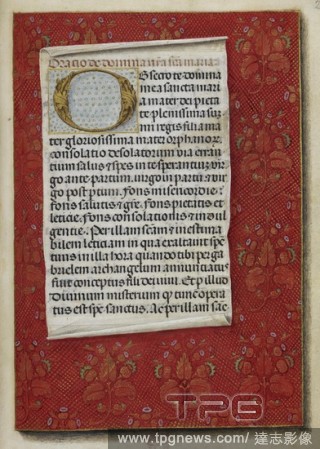 Oracio de domina nr̃a sc̃a maria
OBsecro te domina
mea sancta mari
a mater dei pieta
te plenissima sum̃
mi regis filia ma
ter gloriosissima mater orphanoꝝ.
consolatio desolatorum via erran
tium salus et spes in te sperantiuz vir
go ante partum. virgo in partu et vir
go post p̱tum. fons misericordie.
fons salutis et gr̃e. fons pietatis et
leticie. fons consolationis et in dul
gentie. Per illam scãm et inestima
bilem leticiam in qua exaltauit spe
ritus in illa hora quando tibi per ga
brielem archangelum annunciatus
fuit conceptus filii dei uiui. Et p̱ illud
diuinum misterium qɔ̃ tunc opera
tus est sp̃c sanctus. Ac per illam sac
TPG
www.tpgnews.com / 達志影像